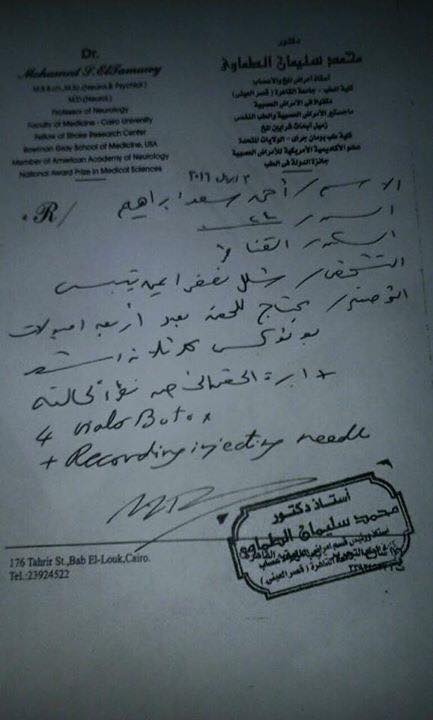 Dr.
Mohamed S. ElTamawy
M.B.B.ch.,M.Sc.(Neuro.& Psychial.)
M.D.(Neurol.)
Professor of Neurology
Faculty of Medicine - Cairo University
Fellow of Stroke Research Center
Bowman Gray School of Medicine, USA
Member of American Academy of Neurology
National Award Prize in Medical Sciences
دكتور
محمد سليمان الطماوى
أستاذ أمراض المخ والأعصاب
كلية الطب - جامعة القاهرة (قصر العينى)
دكتوراه فى الأمراض العصبية
ماجستير الأمراض العصبية والطب النفسى
زميل أبحاث شرايين المخ
كلية طب بومان جراى - الولايات المتحدة
عضو الأكاديمية الأمريكية للأمراض العصبية
جائزة الدولة فى الطب
٣ ابريل ٢٠١٦
R/
الاسم / أحمد سعد ابراهيم
السن /
التشخيص / شلل نصفى ايمن تيبسى
يحتاج للحقن بعدد أربعة امبولات
بوتوكس كل ثلاثة اشهر
+ ابرة الحقن
4 vials Botox
+ Recording injecting needle
أستاذ دكتور
محمد سليمان الطماوى
176 Tahrir St.,Bab El-Louk,Cairo.
Tel.:23924522